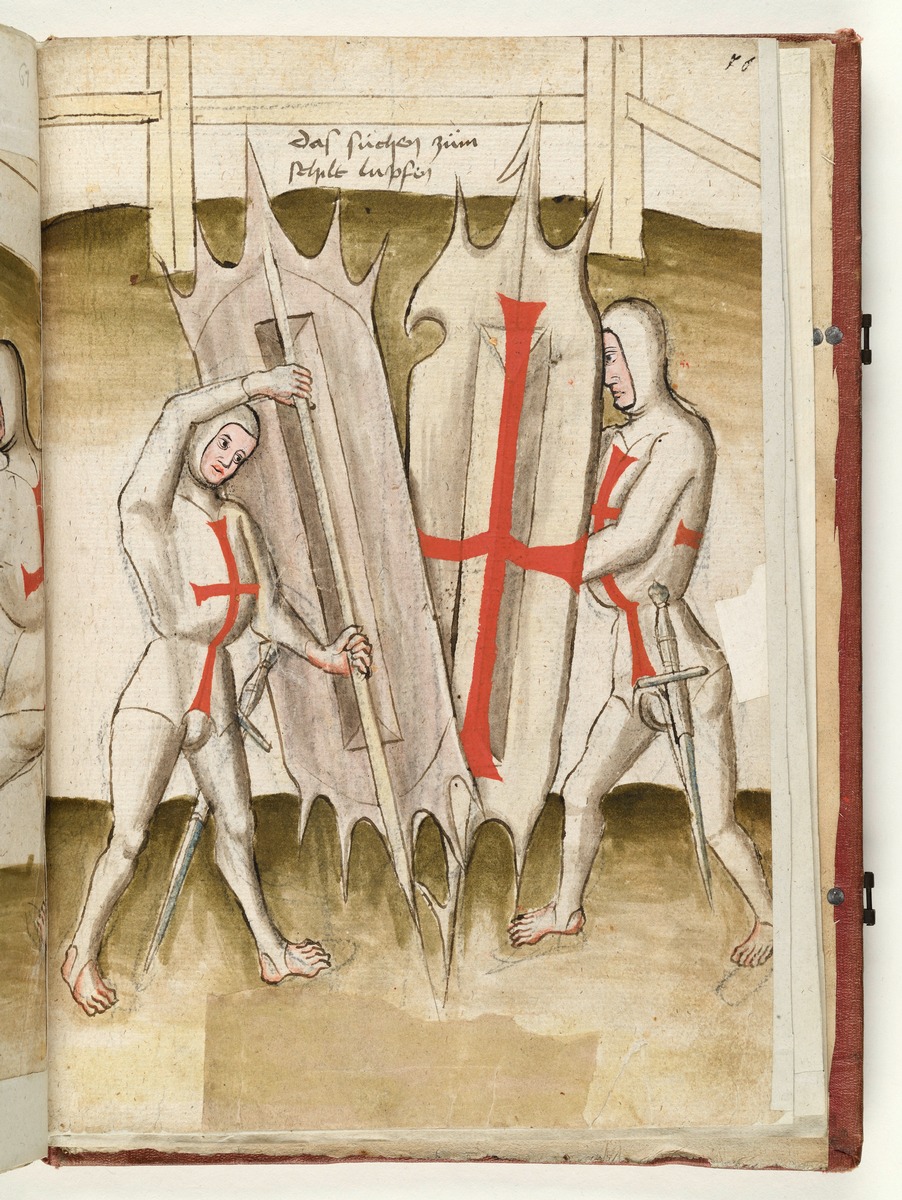 76
das süchen züm
schilt lupfen